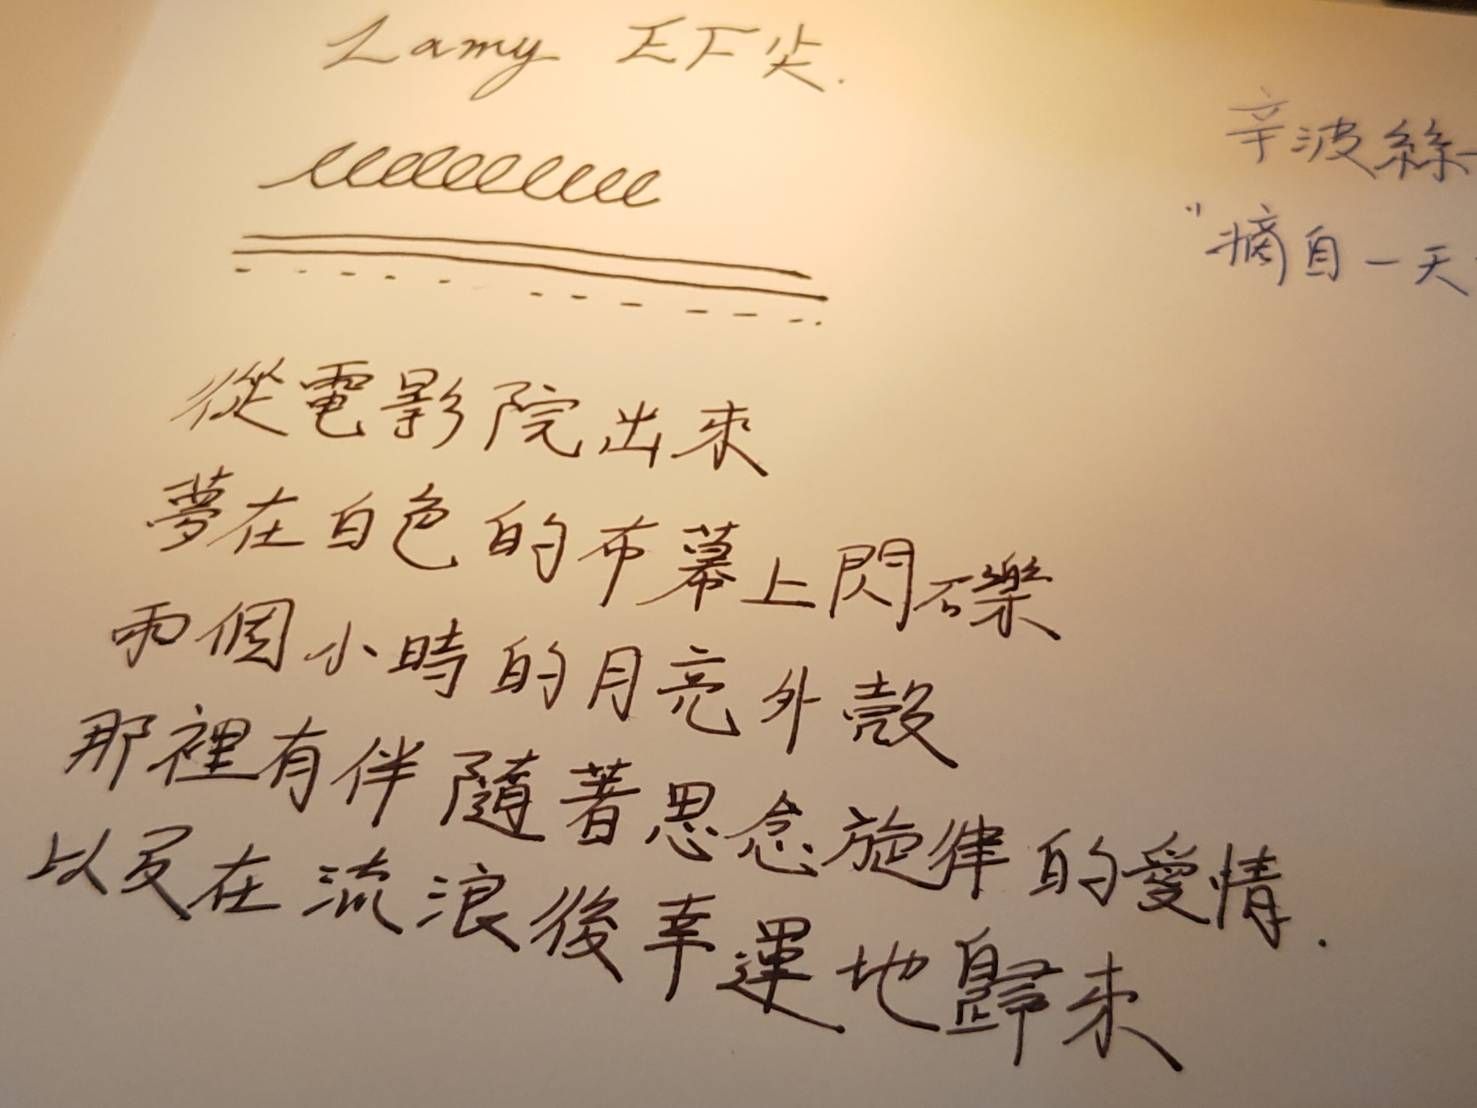 Lamy EF尖.
從電影院出來
夢在白色的布幕上閃礫
兩個小時的月亮外殼
那裡有伴隨著思念旋律的愛情.
以及在流浪後幸運地歸來
辛波絲
"摘自一天